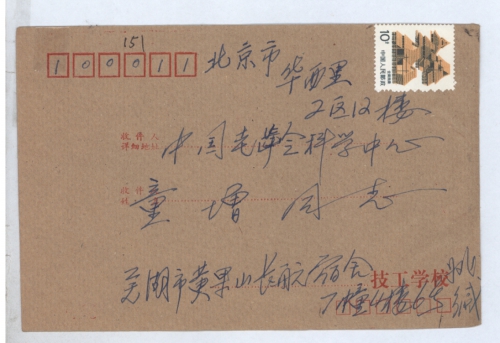 151
100011
北京市
华西里
2区12楼
收件人
详细地址
中国老龄会科学中心
收件
童增同志
芜湖市黄果山长航宿舍
技工学校
姚
缄
10分
中国人民邮政